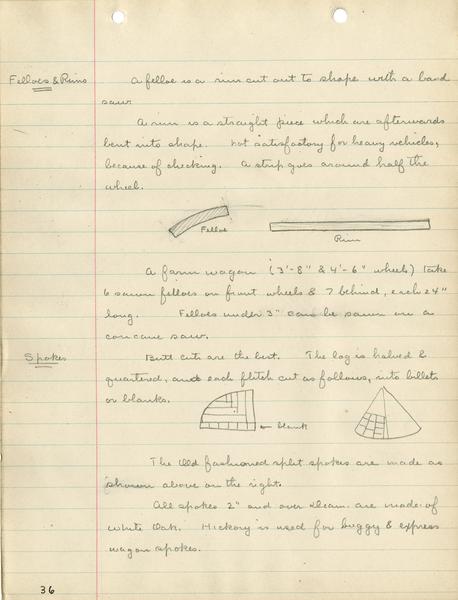 Felloes & Rims
A felloe is a rim cut out to shape with a band
saw
A rim is a straight piece which are afterwards
bent into shape. not satisfactory for heavy vehicles,
because of checking. A strip goes around half the
wheel.
Felloe
Rim
A farm wagon (3'-8" & 4'-6" wheels) take
6 sawn felloes on front wheels & 7 behind, each 24"
long. Felloes under 3" can be sawn on a
concave saw.
Spokes
Butt cuts are the best. The log is halved &
quartered, and each flitch cut as follows, into billets
or blanks.
blank
The old fashioned split spokes are made as
shown above on the right.
All spokes 2" and over diam. are made of
White Oak. Hickory is used for buggy & express
wagon spokes.
36